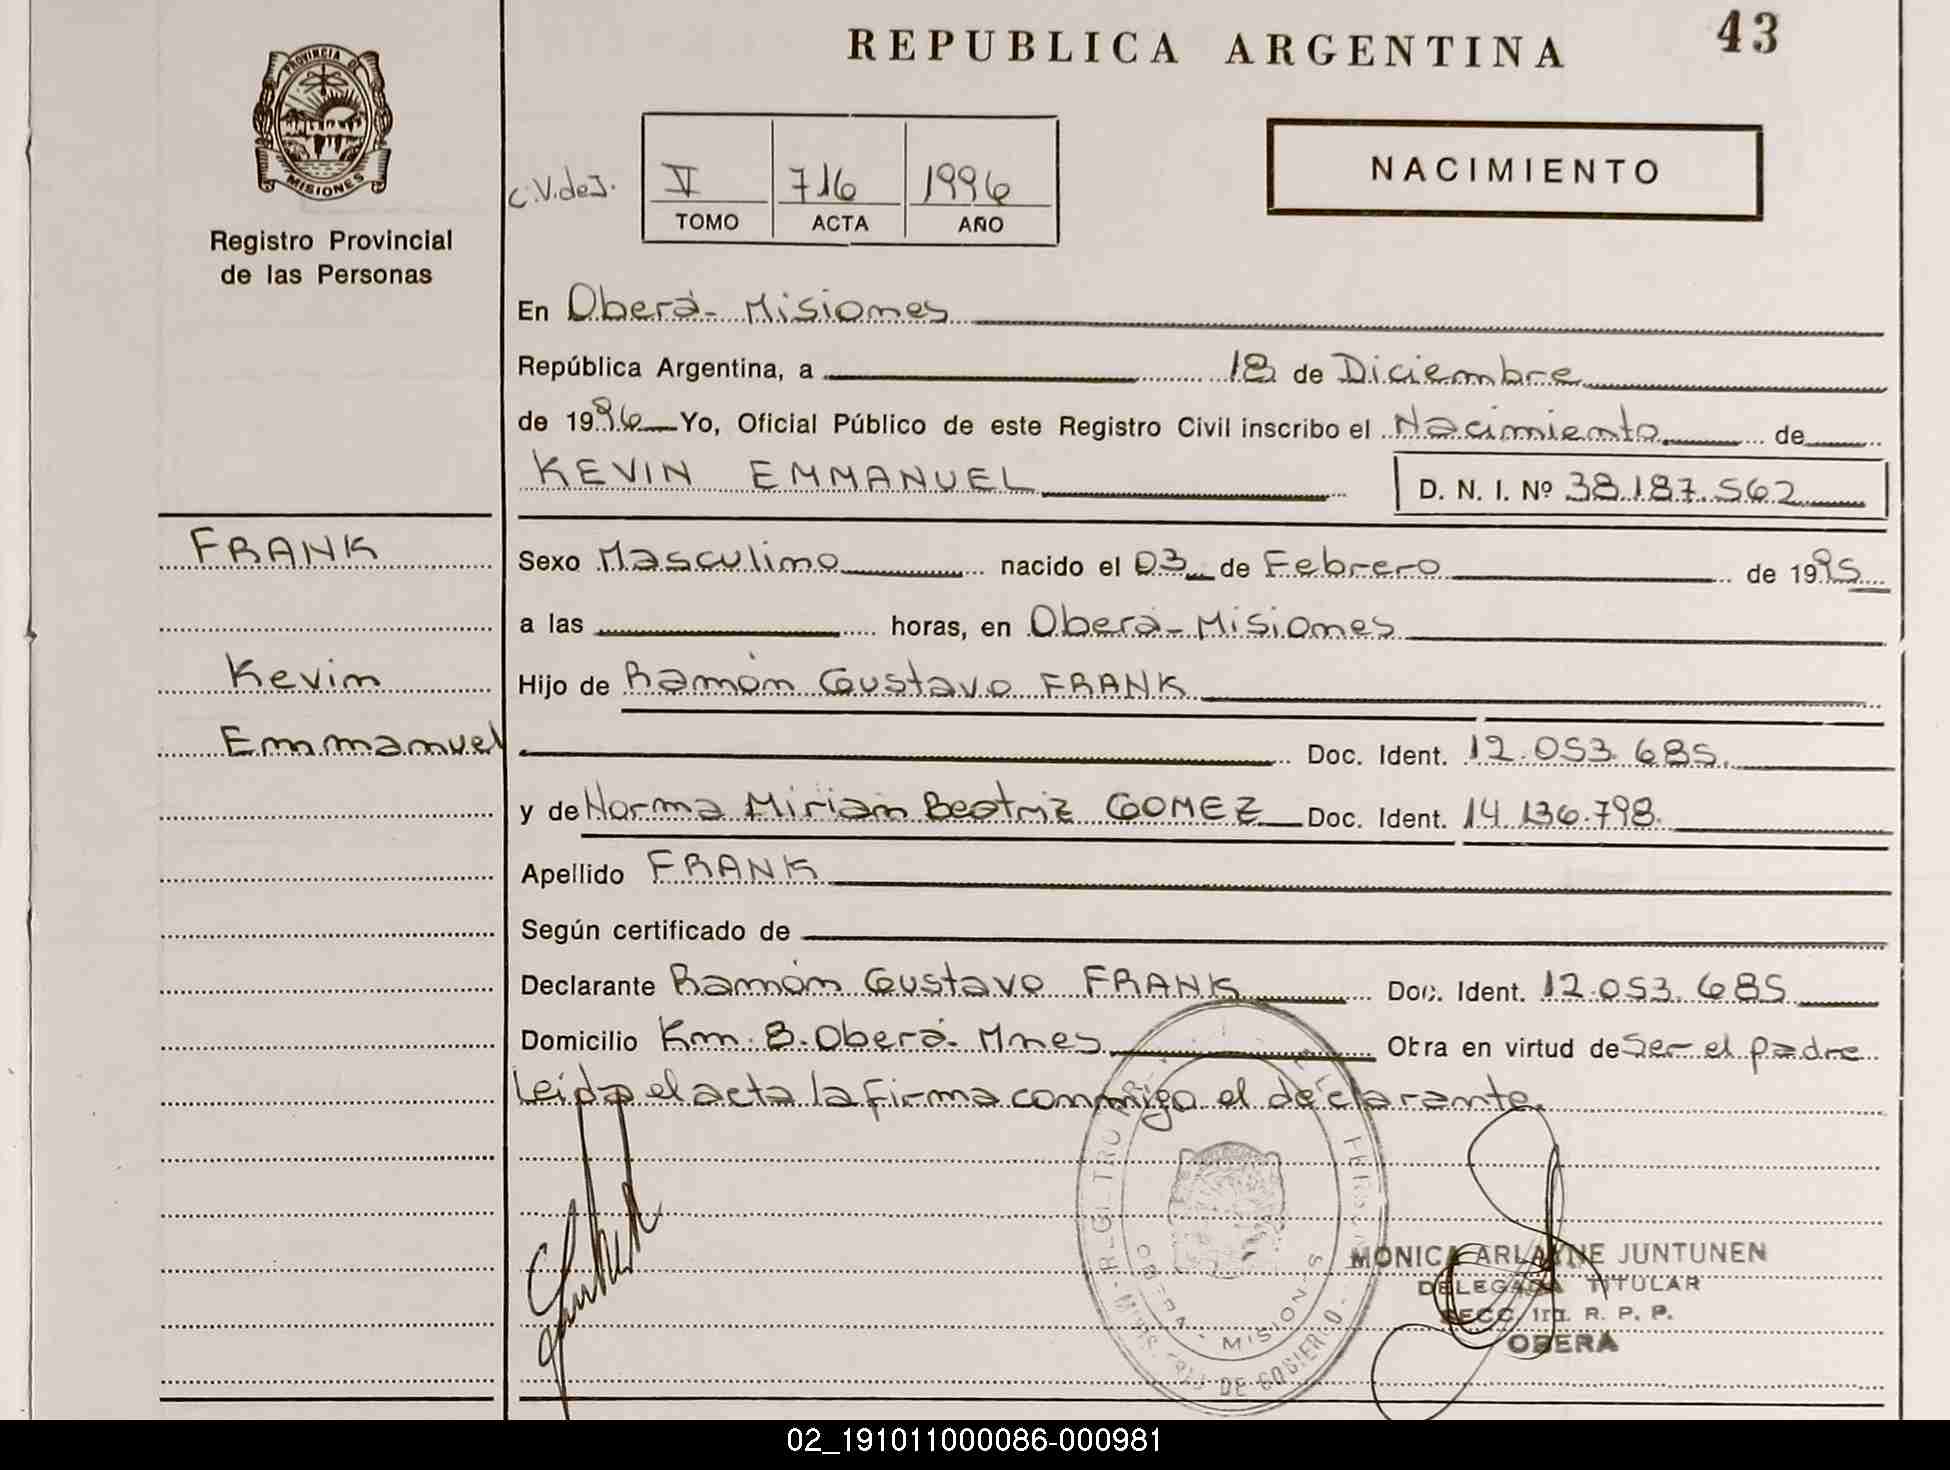 REPUBLICA ARGENTINA
43
PROVINCIA DE
MISIONES
Registro Provincial
de las Personas
C.V.deJ.
V 716 1996
TOMO ACTA AÑO
NACIMIENTO
En Oberá- Misiones
República Argentina, a 18 de Diciembre
de 1996 Yo, Oficial Público de este Registro Civil inscribo el Nacimiento de
KEVIN EMMANUEL D. N. I. Nº 38.187.562
FRANK
Kevin
Emmanuel
Sexo Masculino nacido el 03 de Febrero de 1995
a las horas, en Oberá-Misiones
Hijo de Ramón Gustavo FRANK
Doc. Ident. 12.053.685.
y de Norma Miriam Beatriz GOMEZ Doc. Ident. 14.136.798.
Apellido FRANK
Según certificado de
Declarante Ramón Gustavo FRANK Doc. Ident. 12.053.685
Domicilio Km. 8. Oberá- Mnes Obra en virtud de Ser el padre
Leida el acta la firma conmigo el declarante.
OBERA - MISIONES
MONICA ARLAYNE JUNTUNEN
DELEGADA TITULAR
SECC. 1ra. R. P. P.
OBERA
02_191011000086-000981